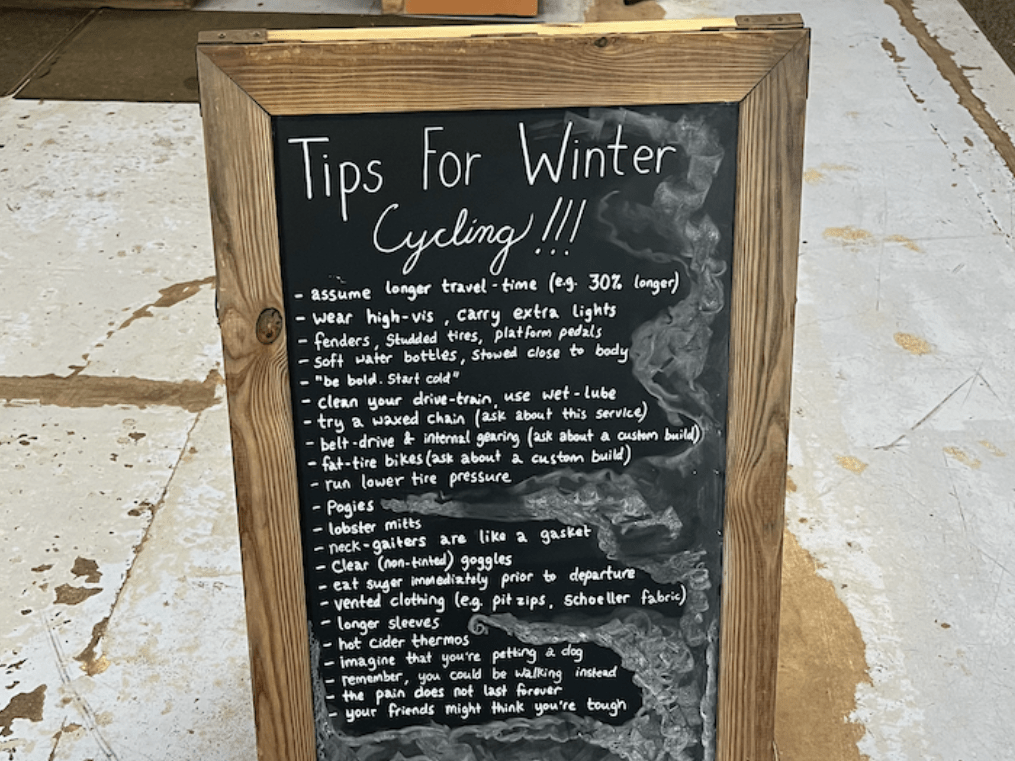 Tips For Winter
Cycling!!!
- assume longer travel-time (e.g. 30% longer)
- wear high-vis, carry extra lights
- fenders, studded tires, platform pedals
- soft water bottles, stowed close to body
- "be bold. Start cold"
- clean your drive-train, use wet-lube
- try a waxed chain (ask about this service)
- belt-drive & internal gearing (ask about a custom build)
- fat-tire bikes (ask about a custom build)
- run lower tire pressure
- Pogies
- lobster mitts
- neck-gaiters are like a gasket
- Clear (non-tinted) goggles
- eat suger immediately prior to departure
- vented clothing (e.g. pit zips, Schoeller fabric)
- longer sleeves
- hot cider thermos
- imagine that you're petting a dog
- remember, you could be walking instead
- the pain does not last forever
- your friends might think you're tough